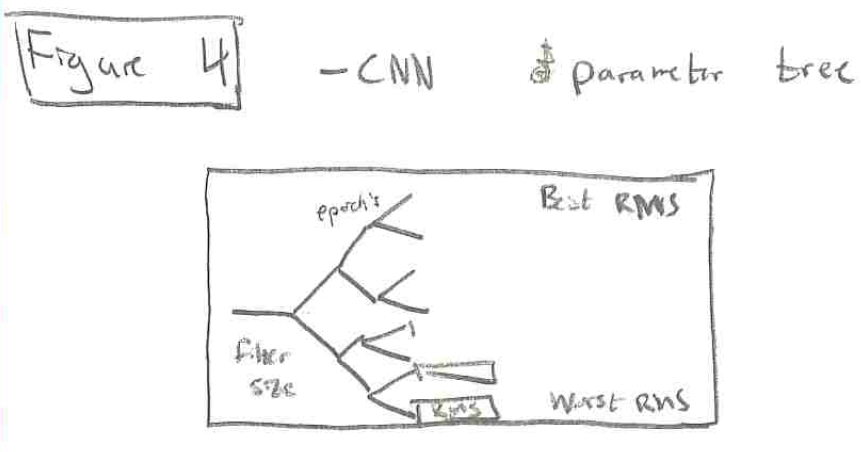 Figure 4 - CNN parameter tree
epoch's
Best RMS
filter
size
RMS
Worst RMS